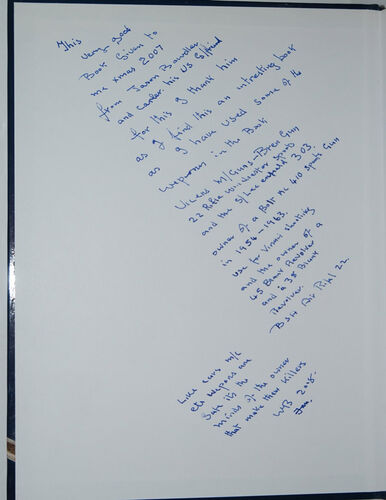 This very good
Book Given to
me xmas 2007
from Jason
and his US G/friend
for this I thank him
as I find this an intresting book
as I have used some of the
weponns in the Book
Vickers M/Guns - Bren Gun
22 Rifle Winchester sports
and the S/Lee enfield 303.
owner of a Bolt Ac 410 sports Gun
in 1954 - 1963.
use for Virmin shooting
and the owner of a
45 Revolver
and a 38
Revolver.
BSA Air Pistl 22.
Like cars m/c
etc wepons are
Safe it's the
minds of the owner
that make them Killers
WB 2008.
Jan.